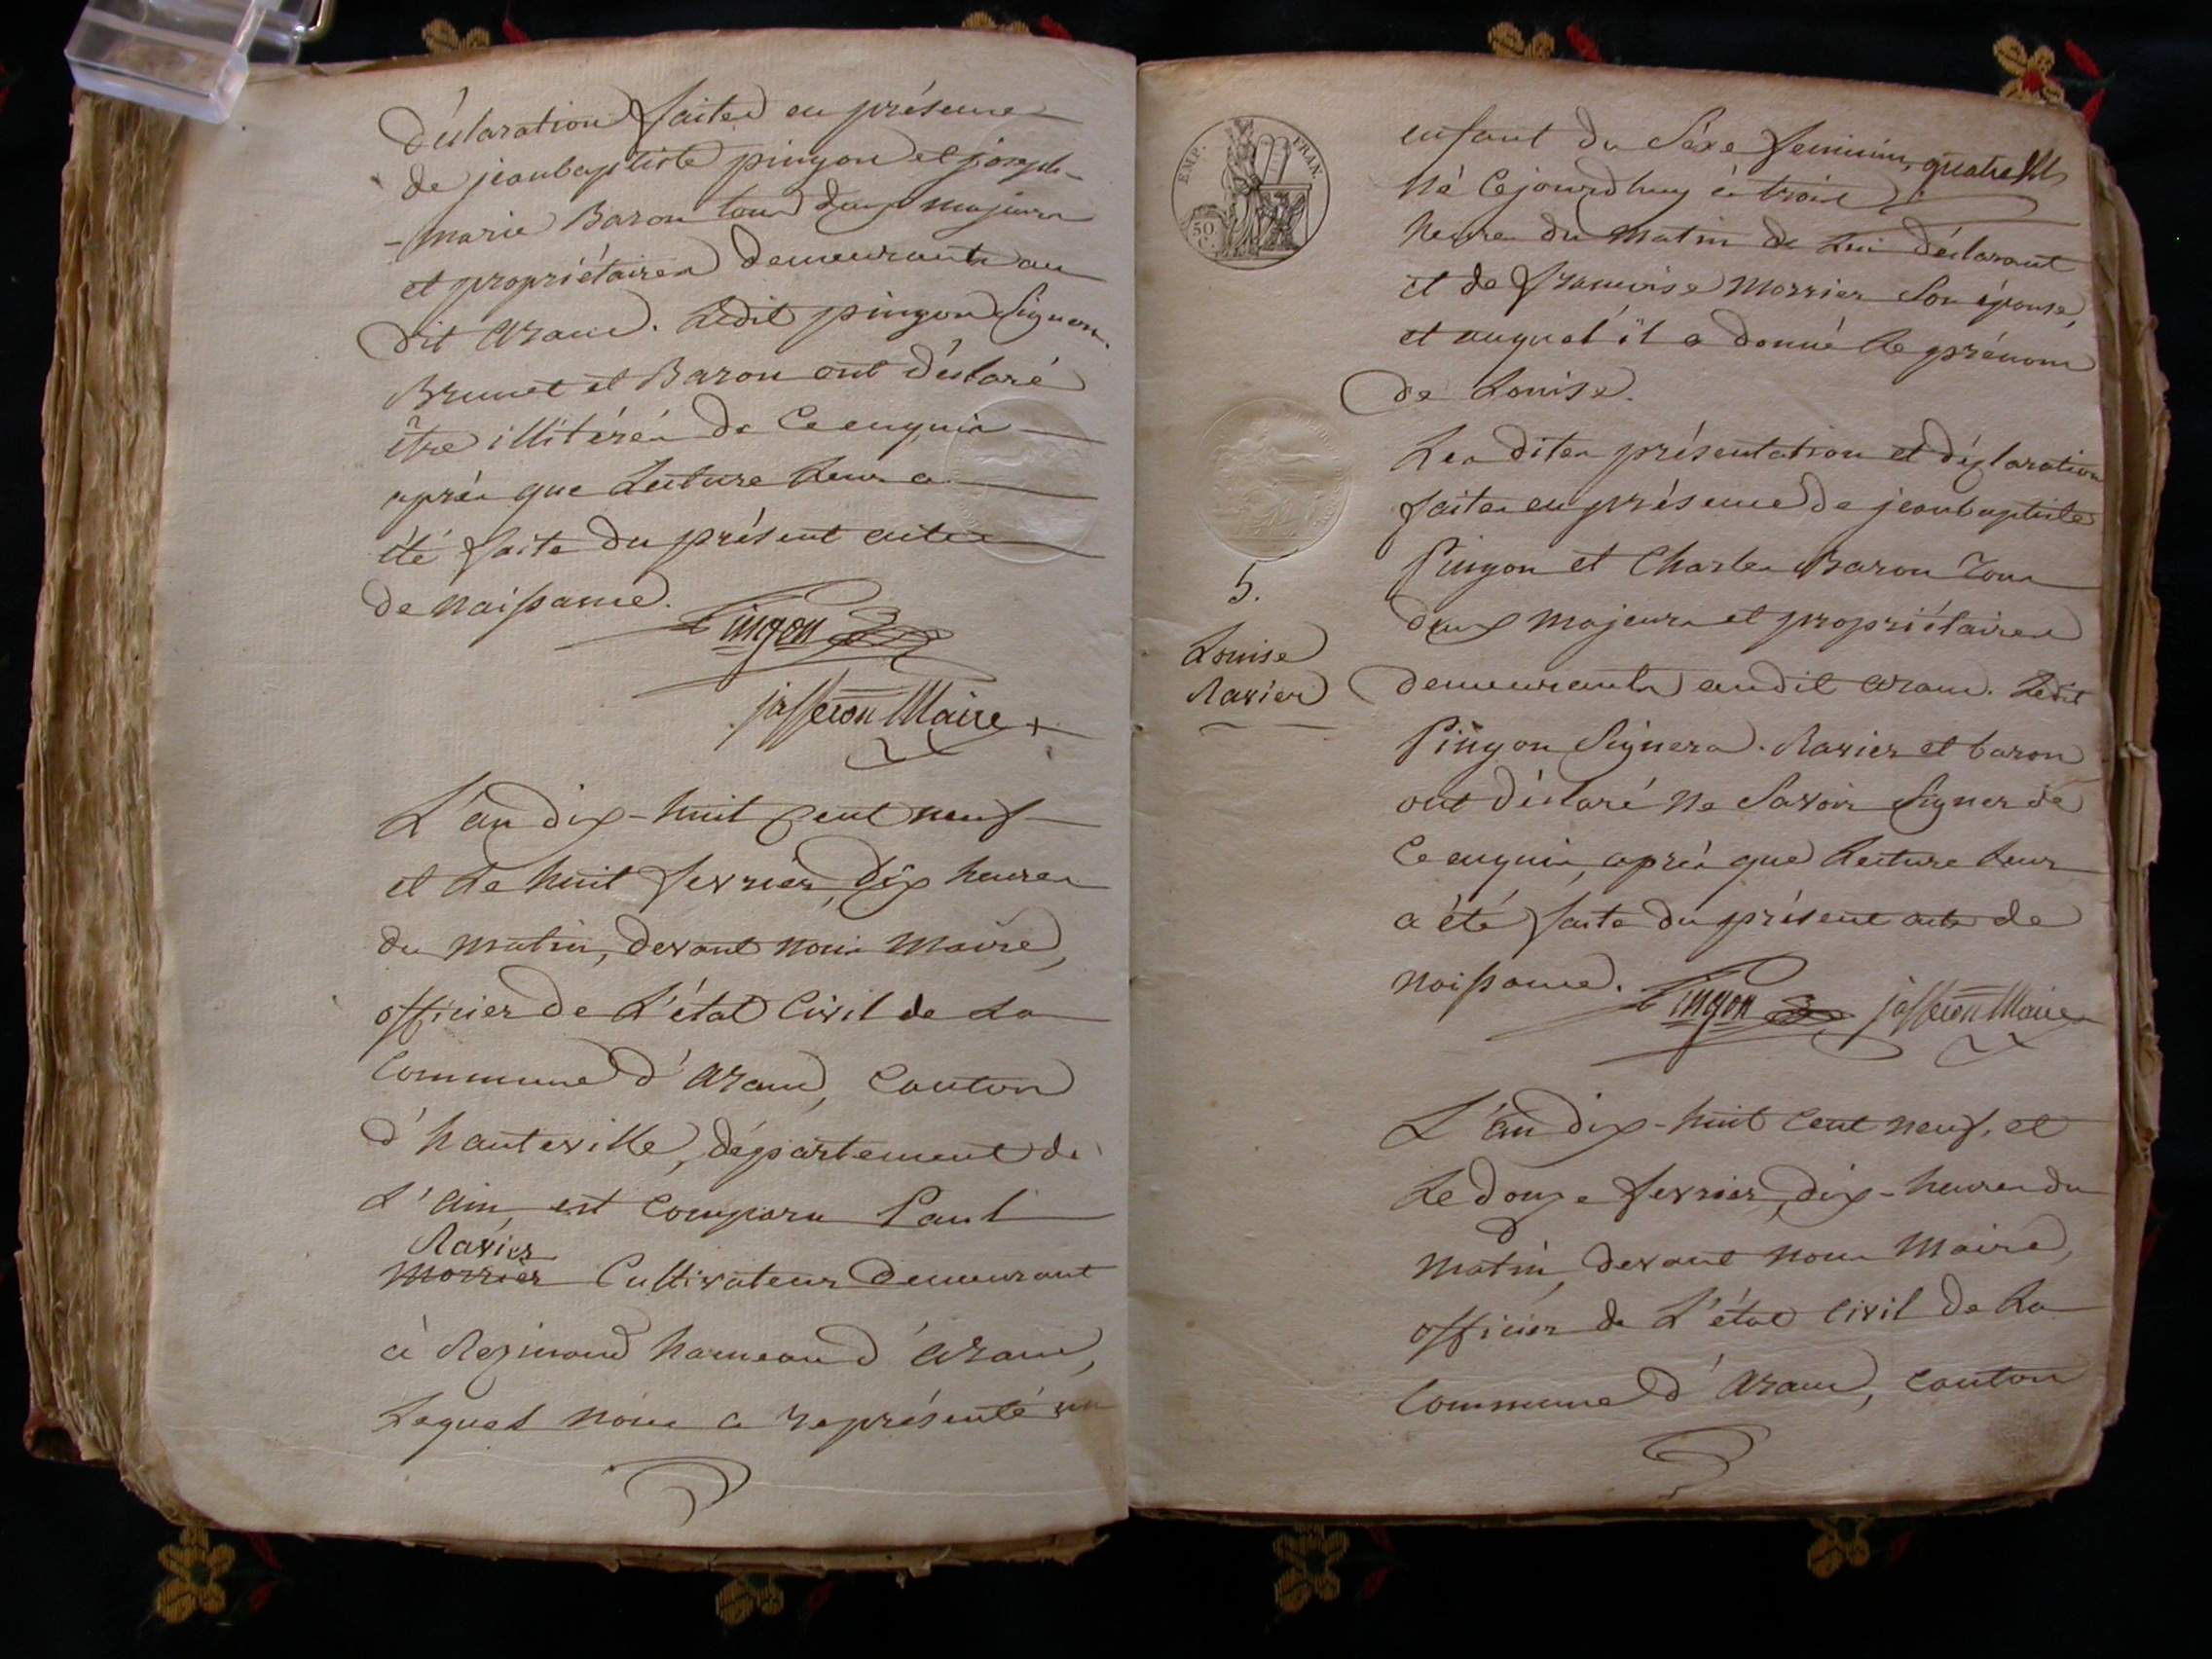 déclaration faites en présence
de jeanbaptiste pingon et joseph-
-marie Baron tous deux majeurs
et propriétaires demeurants au
dit aranc. Ledit pingon Signera.
Brunet et Baron ont déclaré
être illitérés de Ce enquis
après que Lecture leur a
été faite du présent acte
de naissance.
Pingon
jasseron Maire
L'an dix-huit Cent neuf
et Le huit fevrier, dix heures
du matin, devant nous Maire,
officier de L'état Civil de La
Commune d'aranc, Canton
d'hauteville, département de
L'ain, est Comparu Paul
Ravier
Morrier Cultivateur demeurant
à Rezinand hameau d'aranc,
Lequel nous a représenté un
EMP. FRAN.
50 C.
enfant du Sèxe feminin, quatre
né Cejourdhuy à trois
heures du matin de Lui déclarant
et de francoise Morrier Son épouse,
et auquel il a donné le prénom
de Louise.
Les dites présentation et déclaration
faites en présence de jeanbaptiste
Pingon et Charles Baron tous
deux majeurs et propriétaires
demeurants audit aranc. Ledit
5.
Louise
Ravier
Pingon Signera. Ravier et baron
ont déclaré ne Savoir Signer de
Ce enquis, après que Lecture leur
a été faite du présent acte de
naissance.
Pingon jasseron Maire
L'an dix-huit Cent neuf, et
Le douze fevrier, dix-heures du
matin, devant nous Maire,
officier de L'état Civil de La
Commune d'aranc, Canton